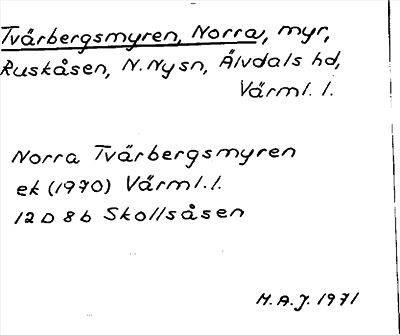 Tvårbergsmyren, Norra, myr,
Ruskåsen, N. Nysn, Älvdals hd,
Värml. l.
Norra Tvärbergsmyren
ek (1970) Värml. l.
12 D 8 b Skollsåsen
H. A. J. 1971